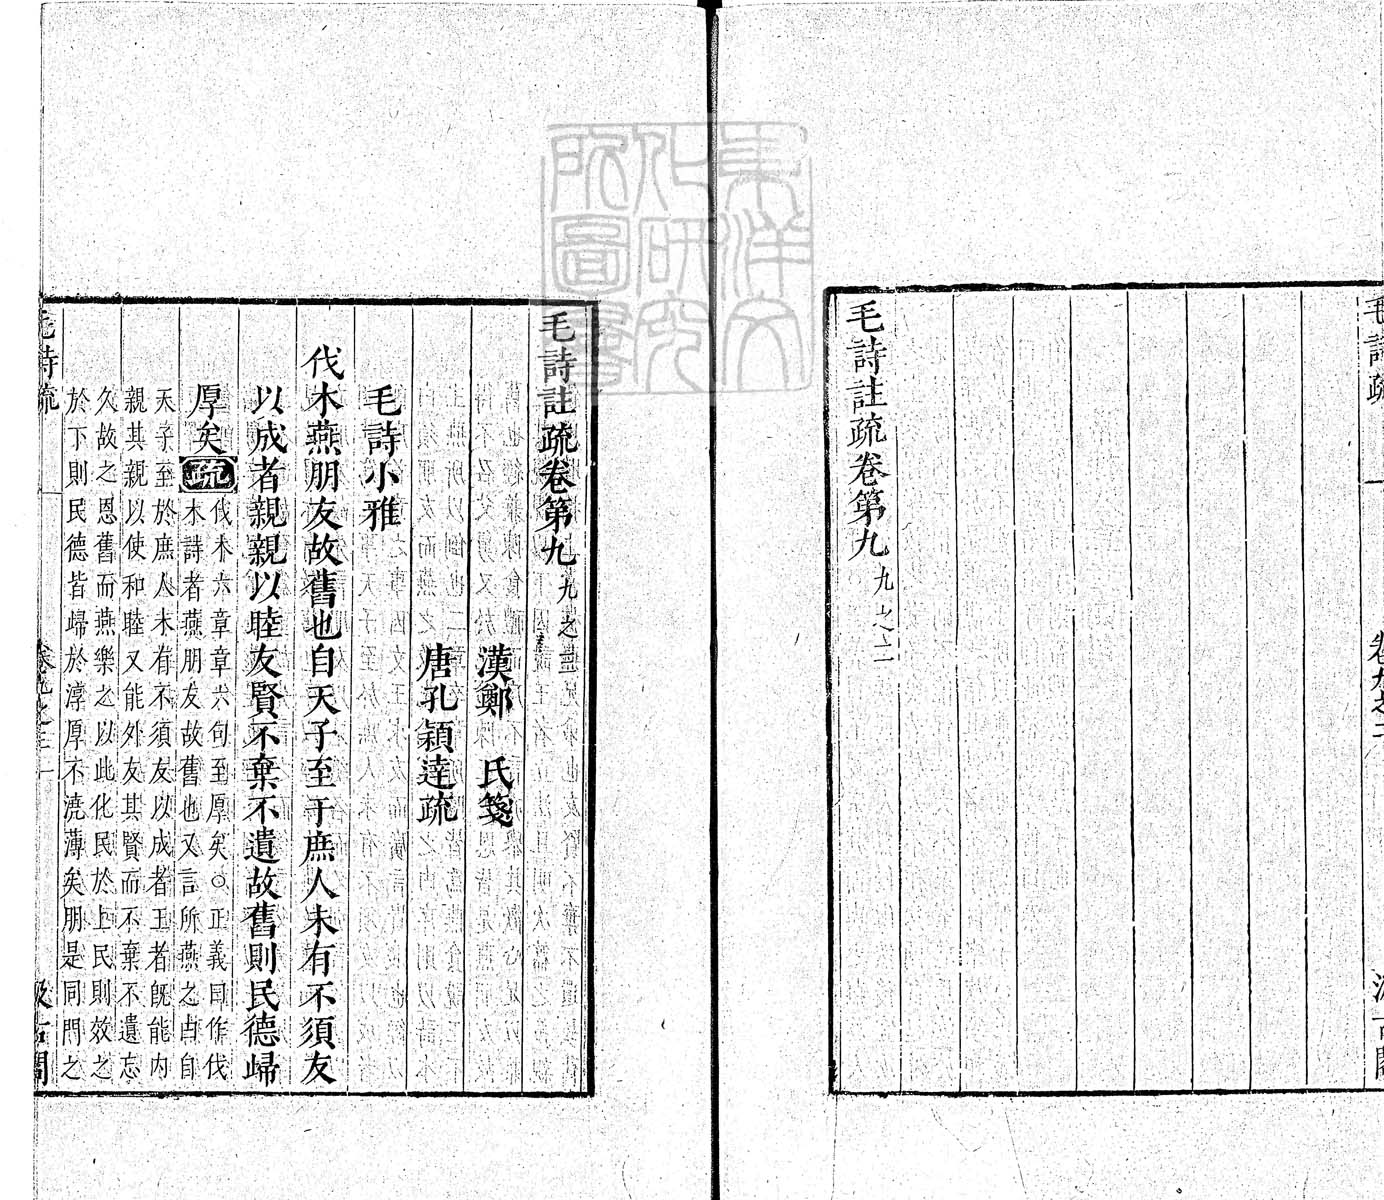 毛詩疏
卷九之二
毛詩註疏卷第九 九之二
東洋文
化研究
所圖書
毛詩註疏卷第九 九之三
漢鄭 氏箋
唐孔穎達疏
毛詩小雅
伐木燕朋友故舊也自天子至于庶人未有不須友
以成者親親以睦友賢不棄不遺故舊則民德歸
厚矣 疏 伐木六章章六句至厚矣○正義曰作伐
木詩者燕朋友故舊也又言所燕之由自
天子至於庶人未有不須友以成者王者旣能内
親其親以使和睦又能外友其賢而不棄不遺忘
久故之恩舊而燕樂之以此化民於上民則效之
於下則民德皆歸於淳厚不澆薄矣朋是同門之
毛詩疏
卷九之三 一
汲古閣